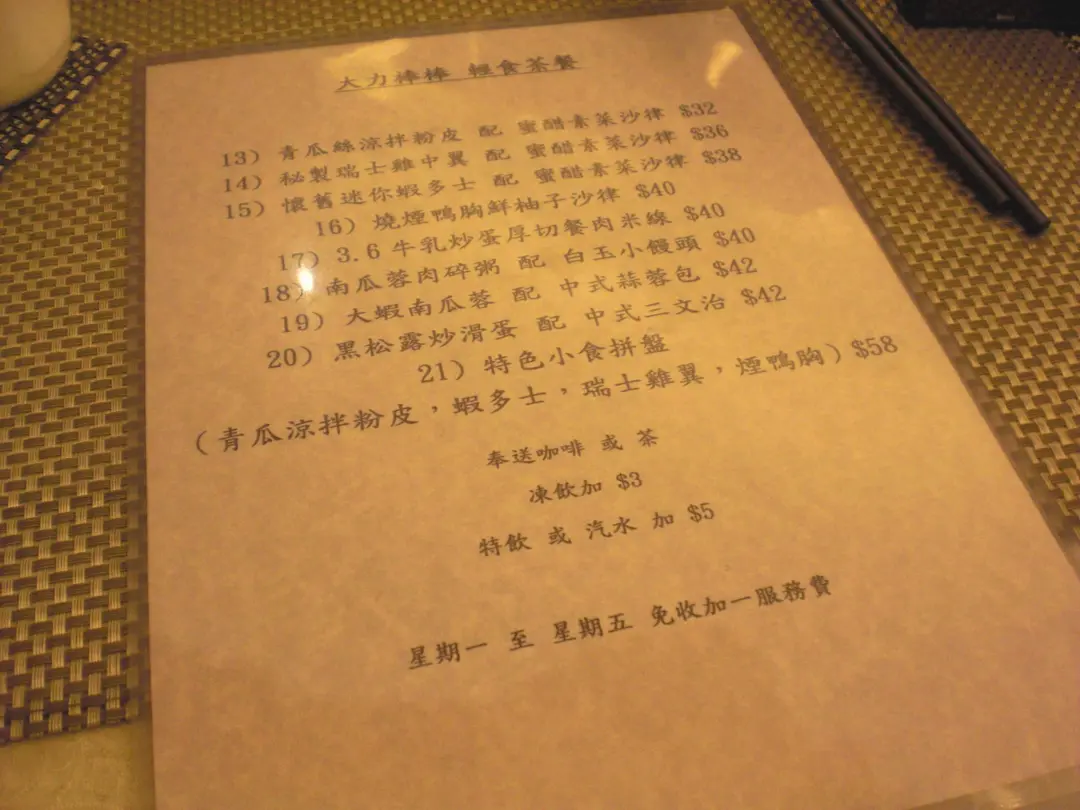 大力棒棒 輕食茶餐
13) 青瓜絲涼拌粉皮 配 蜜醋素菜沙律 $32
14) 秘製瑞士雞中翼 配 蜜醋素菜沙律 $36
15) 懷舊迷你蝦多士 配 蜜醋素菜沙律 $38
16) 燒煙鴨胸鮮柚子沙律 $40
17) 3.6 牛乳炒蛋厚切餐肉米線 $40
18) 南瓜蓉肉碎粥 配 白玉小饅頭 $40
19) 大蝦南瓜蓉 配 中式蒜蓉包 $42
20) 黑松露炒滑蛋 配 中式三文治 $42
21) 特色小食拼盤
(青瓜涼拌粉皮，蝦多士，瑞士雞翼，煙鴨胸) $58
奉送咖啡 或 茶
凍飲加 $3
特飲 或 汽水 加 $5
星期一 至 星期五 免收加一服務費